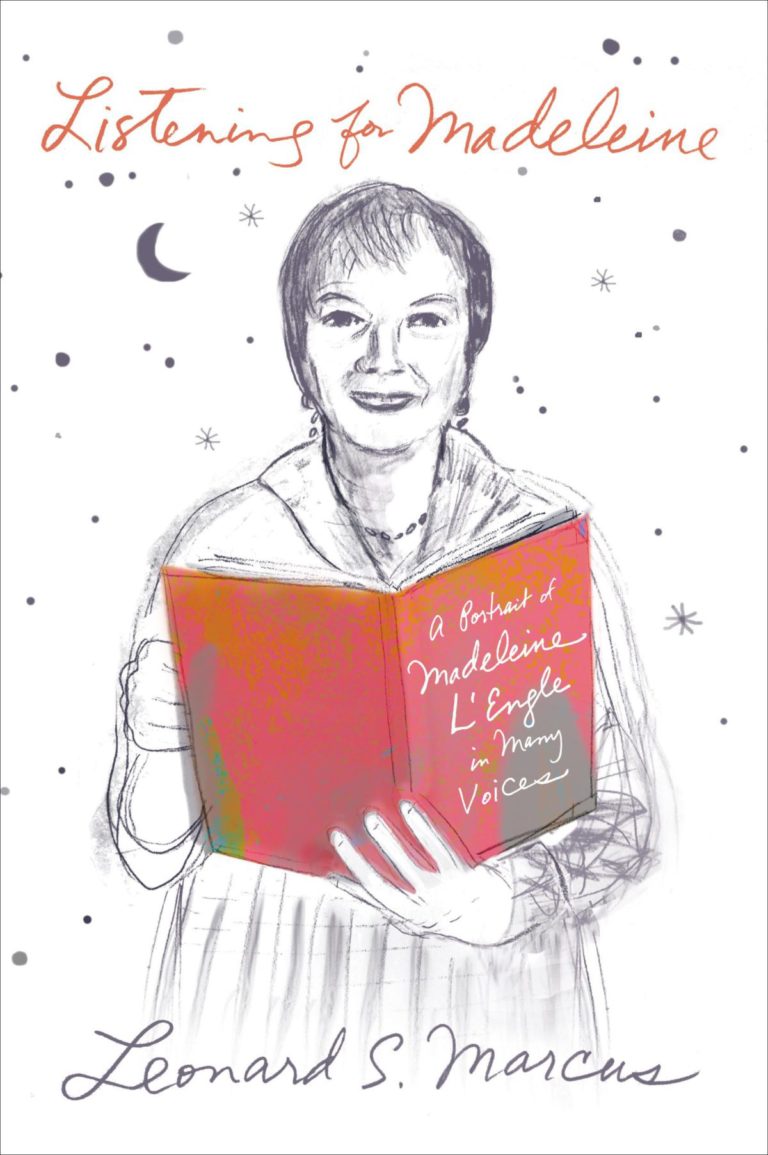 Listening for Madeleine
A Portrait of
Madeleine
L'Engle
in Many
Voices
Leonard S. Marcus